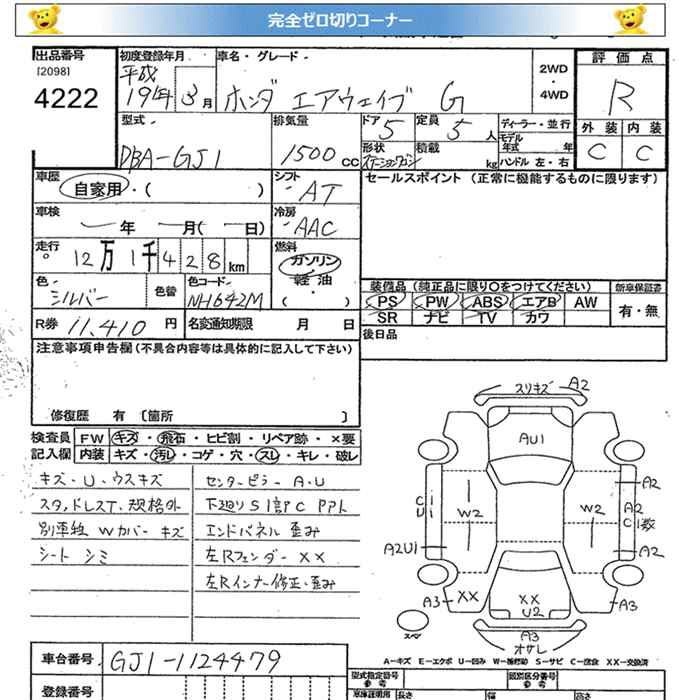 完全ゼロ切りコーナー
出品番号 初度登録年月 車名・グレード 評価点
[2098] 平成 2WD
4222 19年3月 ホンダ エアウェイブ G 4WD R
型式 排気量 ドア 定員 ディーラー・並行 外装 内装
DBA-GJ1 1500cc 5 5人 モデル年式 年 C C
形状 積載 kg ハンドル 左・右
ステーションワゴン
車歴 シフト セールスポイント (正常に機能するものに限ります)
自家用・( ) AT
車検 冷房
年 月( 日) AAC
走行 燃料
12万1千428km ガソリン
軽油
・( )
色 色替 色コード 装備品 (純正品に限り○をつけてください) 新車保証書
シルバー NH642M PS PW ABS エアB AW 有・無
R券 11,410円 名変通知期限 月 日 SR ナビ TV カワ
注意事項申告欄(不具合内容等は具体的に記入して下さい) 後日品
修復歴 有 〔箇所 〕
検査員 FW キズ・飛石・ヒビ割・リペア跡・×要
記入欄 内装 キズ・汚レ・コゲ・穴・スレ・キレ・破レ
キズ・U・ウスキズ センターピラー A・U
スタッドレスT、規格外 下廻りS1部C PPト
別車種 Wカバー キズ エンドパネル 歪み
シート シミ 左Rフェンダー XX
左Rインナー修正・歪み
スリキズ A2
AU1
A2
C1 U1 W2 W2 A2 C1数
A2U1 A2
A3 XX XX U2 A3
スペア A3
オサレ
A-キズ E-エクボ U-凹み W-補修跡 S-サビ C-腐食 XX-交換済
車台番号 GJ1-1124479
型式指定番号 類別区分番号
参考 参考
登録番号 車庫証明用 長さ 幅 高さ
参考